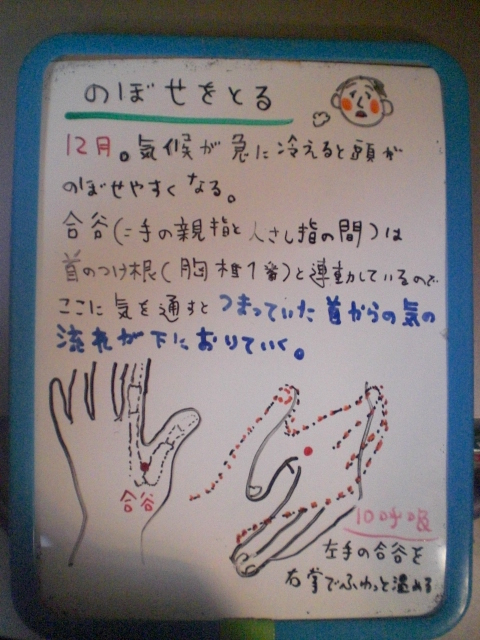 のぼせをとる
12月。気候が急に冷えると頭が
のぼせやすくなる。
合谷(=手の親指と人さし指の間)は
首のつけ根(胸椎1番)と連動しているので
ここに気を通すとつまっていた首からの気の
流れが下におりていく。
合谷
10呼吸
左手の合谷を
右掌でふわっと温める